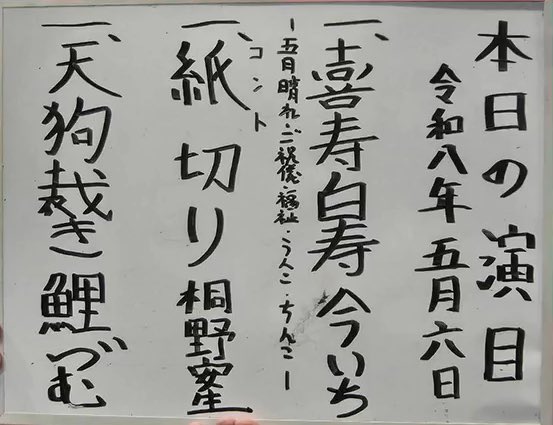 本日の演目
令和八年 五月六日
一、喜寿白寿 今いち
ー五月晴れ・ご祝儀・福祉・うんこ・ちんこー
コント
一、紙切り 桐野窒
一、天狗裁き 鯉づむ